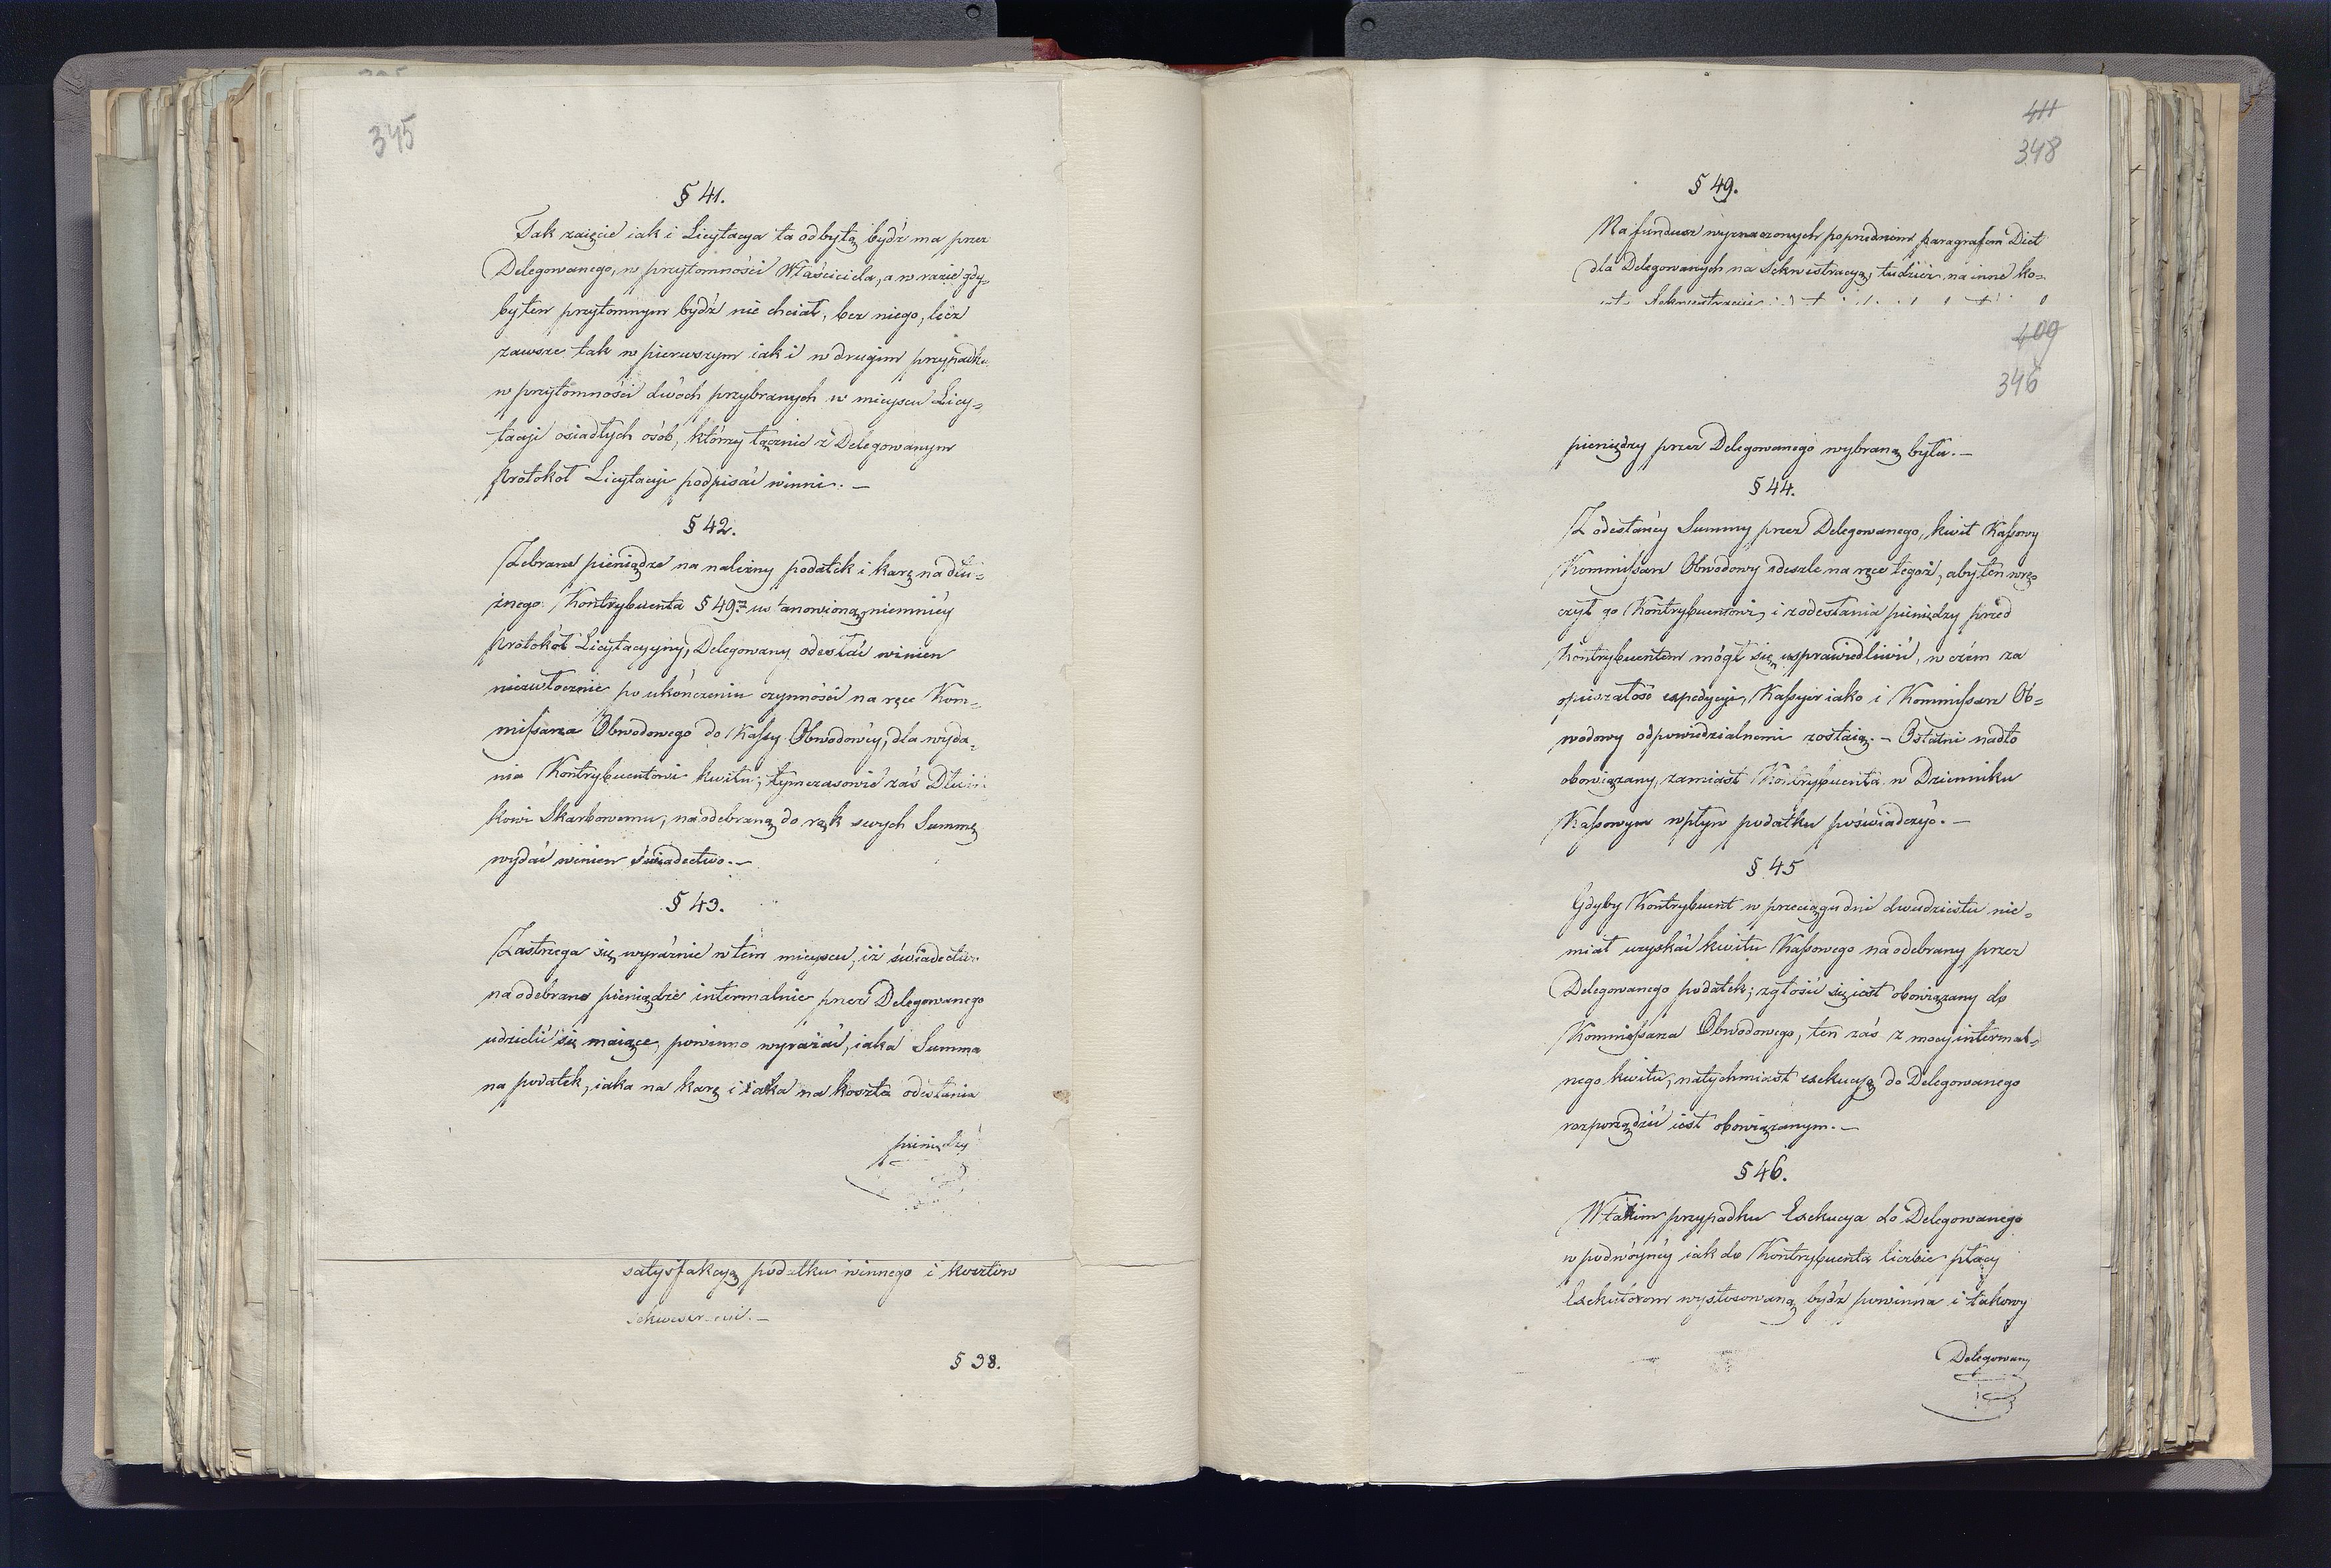 345
§ 41.
Tak zaięcie iak i Licytacya ta odbytą bydź ma przez
Delegowanego, w przytomności Właściciela, a w razie gdy=
by ten przytomnym bydź nie chciał, bez niego, lecz
zawsze tak w pierwszym iak i w drugim przypadku
w przytomności dwóch przybranych w mieyscu Licy=
tacyi osiadłych osób, którzy łącznie z Delegowanym
Protokół Licytacyi podpisać winni. —
§ 42.
Zebrane pieniądze na należny podatek i karę na dłu=
żnego Kontrybuenta § 49. ustanowioną, niemniéy
Protokół Licytacyyny, Delegowany odesłać winien
niezwłocznie po ukończeniu czynności na ręce Kom=
missarza Obwodowego do Kassy Obwodowéy, dla wyda=
nia Kontrybuentowi kwitu; tymczasowie zaś Dłuż
kowi Skarbowemu, na odebraną do rąk swych Summę
wydać winien świadectwo. —
§ 43.
Zastrzega się wyraźnie w tém mieyscu, iż świadectwo
na odebrane pieniądze intermalnie przez Delegowanego
udzielić się maiące, powinno wyrażać, iaka Summa
na podatek, iaka na karę i iaka na koszta odesłania
pieniędzy
satysfakcyą podatku winnego i kosztów
§ 38.
411
348
§ 49.
Na fundusz wyznaczonych poprzednim paragrafem Diet
dla Delegowanych na Sekwestracyą, tudzież na inne ko=
Sekwestracyi
409
346
pieniędzy przez Delegowanego wybraną była. —
§ 44.
Z odesłanéy Summy przez Delegowanego, kwit Kassowy
Kommissarz Obwodowy odeszle na ręce tegoż, aby ten wrę=
czył go Kontrybuentowi, i z odesłania pieniędzy przed
Kontrybuentem mógł się usprawiedliwić, w czém za
opieszałość expedycyi, Kassyer iako i Kommissarz Ob=
wodowy odpowiedzialnemi zostaią. — Ostatni nadto
obowiązany, zamiast Kontrybuenta w Dzienniku
Kassowym wpływ podatku poświadczyć. —
§ 45
Gdyby Kontrybuent w przeciągu dni dwudziestu nie=
miał uzyskać kwitu Kassowego na odebrany przez
Delegowanego podatek; zgłosić się iest obowiązany do
Kommissarza Obwodowego, ten zaś z mocy intermal=
nego kwitu, natychmiast exekucyą do Delegowanego
rozporządzić iest obowiązanym. —
§ 46.
W takim przypadku Exekucya do Delegowanego
w podwóynéy iak do Kontrybuenta liczbie płacy
Exekutorom wystosowaną bydź powinna i takowy
Delegowany